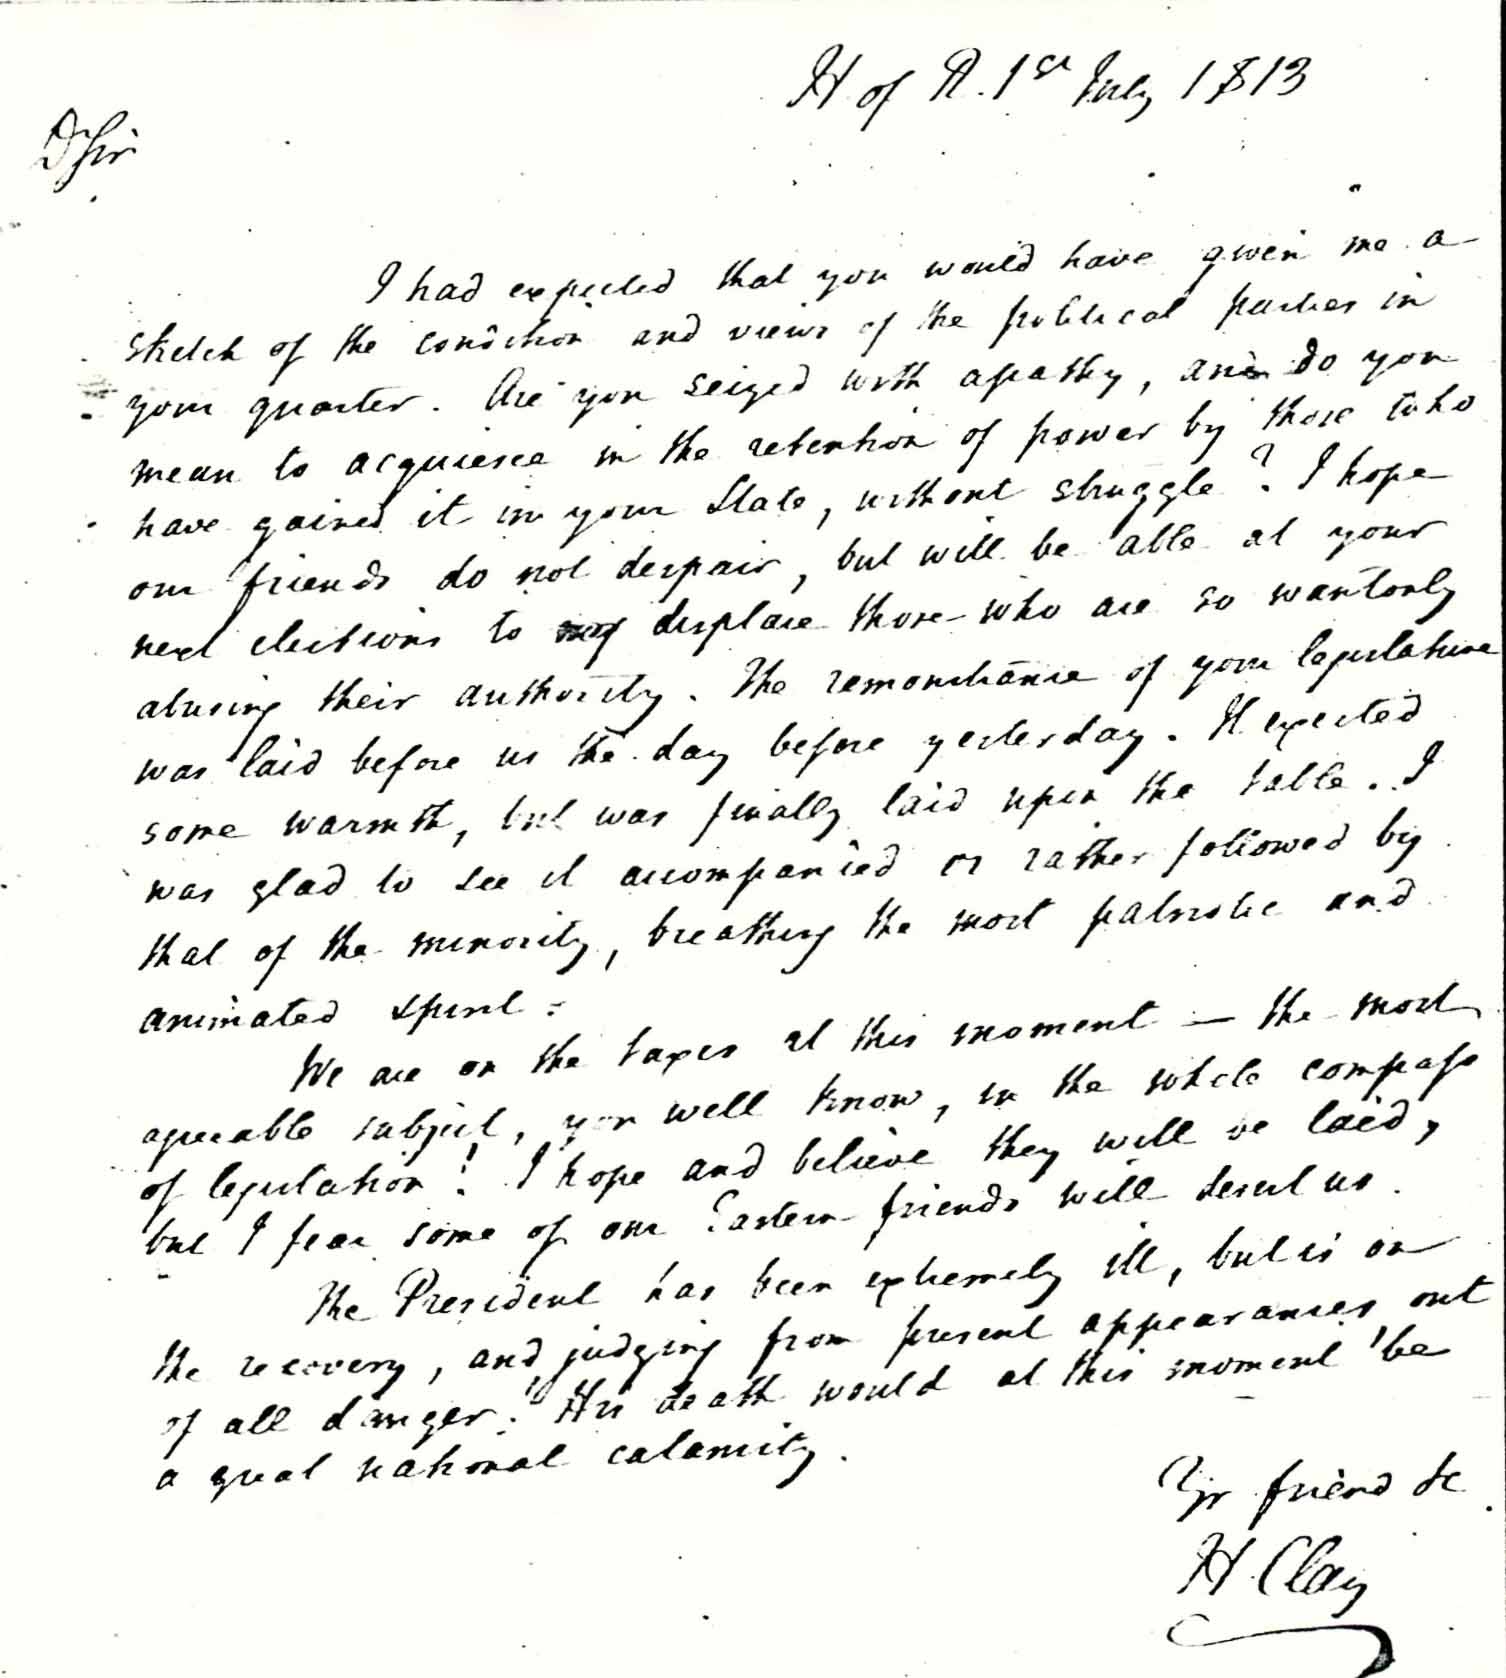 H of R. 1st July 1813
D Sir
I had expected that you would have given me a
sketch of the condition and views of the political parties in
your quarter. Are you seized with apathy, and do you
mean to acquiesce in the retention of power by those who
have gained it in your State, without struggle? I hope
our friends do not despair, but will be able at your
next elections to displace those who are so wantonly
abusing their authority. The remonstrance of your legislature
was laid before us the day before yesterday. It excited
some warmth, but was finally laid upon the table. I
was glad to see it accompanied or rather followed by
that of the minority, breathing the most patriotic and
animated spirit.
We are on the taxes at this moment — the most
agreeable subject, you well know, in the whole compass
of legislation! I hope and believe they will be laid,
but I fear some of our Eastern friends will desert us.
The President has been extremely ill, but is on
the recovery, and, judging from present appearances, out
of all danger. His death would at this moment be
a great national calamity.
Yr friend &c
H. Clay